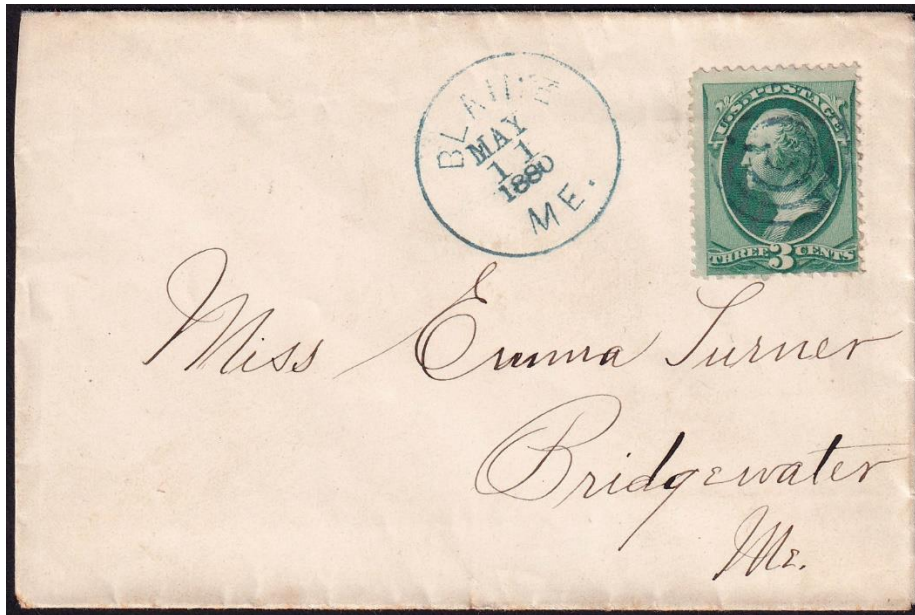 BLAINE
MAY
11
1880
ME.
U.S. POSTAGE
THREE 3 CENTS
Miss Emma Turner
Bridgewater
Me.